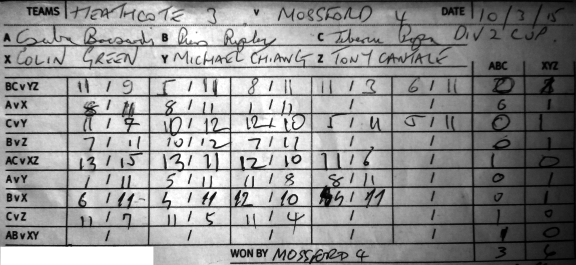 TEAMS HEATHCOTE 3 V MOSSFORD 4 DATE 10/3/15
A B C DIV 2 CUP.
X COLIN GREEN Y MICHAEL CHIANG Z TONY CANTALE
ABC XYZ
BCvYZ 11/9 5/11 8/11 11/3 6/11 0
AvX 8/11 8/11 1/11 / / 0 1
CvY 11/9 10/12 12/10 5/11 5/11 0 1
BvZ 7/11 10/12 7/11 / / 0 1
ACvXZ 13/15 13/11 12/10 11/6 / 1 0
AvY 1/11 5/11 11/8 8/11 / 0 1
BvX 6/11 5/11 12/10 /11 / 0 1
CvZ 11/7 11/5 11/4 / / 1 0
ABvXY / / / / / 1 0
WON BY MOSSFORD 4 3 6